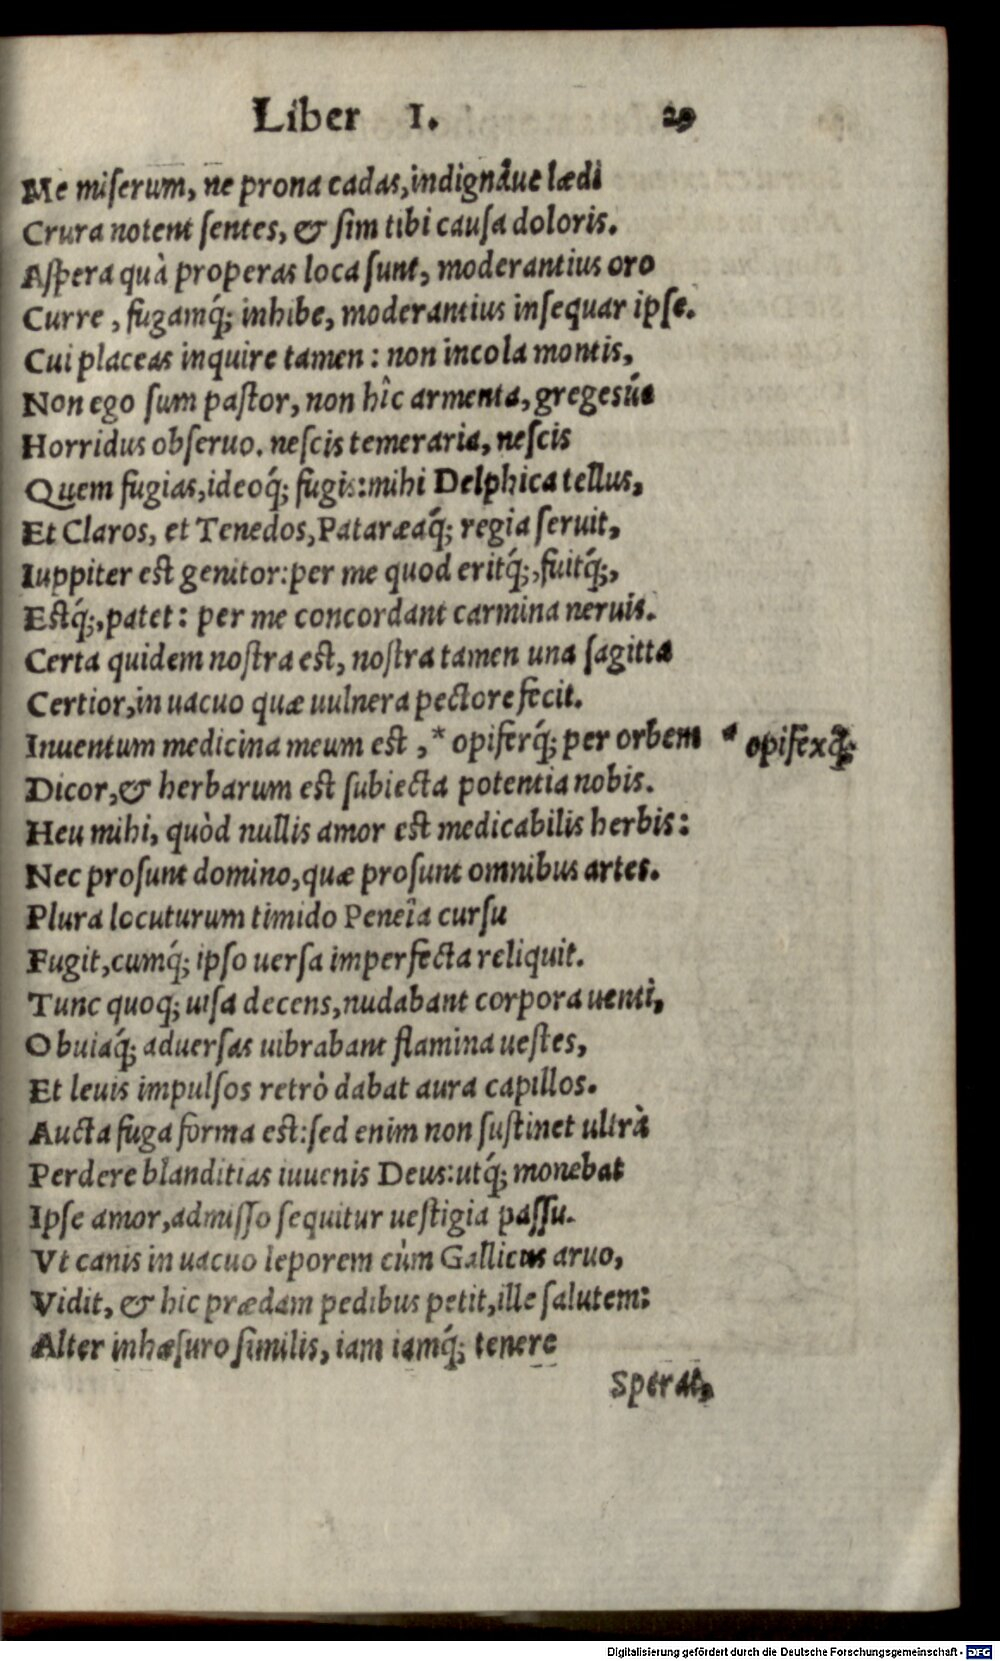 Liber I. 29
Me miſerum, ne prona cadas, indignáue lædi
Crura notent ſentes, & ſim tibi cauſa doloris.
Aſpera quà properas loca ſunt, moderantius oro
Curre, fugamq́; inhibe, moderantius inſequar ipſe.
Cui placeas inquire tamen: non incola montis,
Non ego ſum paſtor, non hîc armenta, gregesúe
Horridus obſeruo. neſcis temeraria, neſcis
Quem fugias, ideoq́; fugis: mihi Delphica tellus,
Et Claros, et Tenedos, Pataræaq́; regia ſeruit,
Iuppiter est genitor: per me quod eritq́;, fuitq́;,
Estq́;, patet: per me concordant carmina neruis.
Certa quidem noſtra est, noſtra tamen una ſagitta
Certior, in uacuo quæ uulnera pectore fecit.
Inuentum medicina meum est, * opiferq́; per orbem * opifexq́;
Dicor, & herbarum est ſubiecta potentia nobis.
Heu mihi, quòd nullis amor est medicabilis herbis:
Nec proſunt domino, quæ proſunt omnibus artes.
Plura locuturum timido Peneîa curſu
Fugit, cumq́; ipſo uerſa imperfecta reliquit.
Tunc quoq; uiſa decens, nudabant corpora uenti,
Obuiaq́; aduerſas uibrabant flamina ueſtes,
Et leuis impulſos retrò dabat aura capillos.
Aucta fuga forma est: ſed enim non ſuſtinet ultrà
Perdere blanditias iuuenis Deus: utq́; monebat
Ipſe amor, admiſſo ſequitur ueſtigia paſſu.
Vt canis in uacuo leporem cùm Gallicus aruo,
Vidit, & hic prædam pedibus petit, ille ſalutem:
Alter inhæſuro ſimilis, iam iamq́; tenere
Sperat,
Digitalisierung gefördert durch die Deutsche Forschungsgemeinschaft - DFG